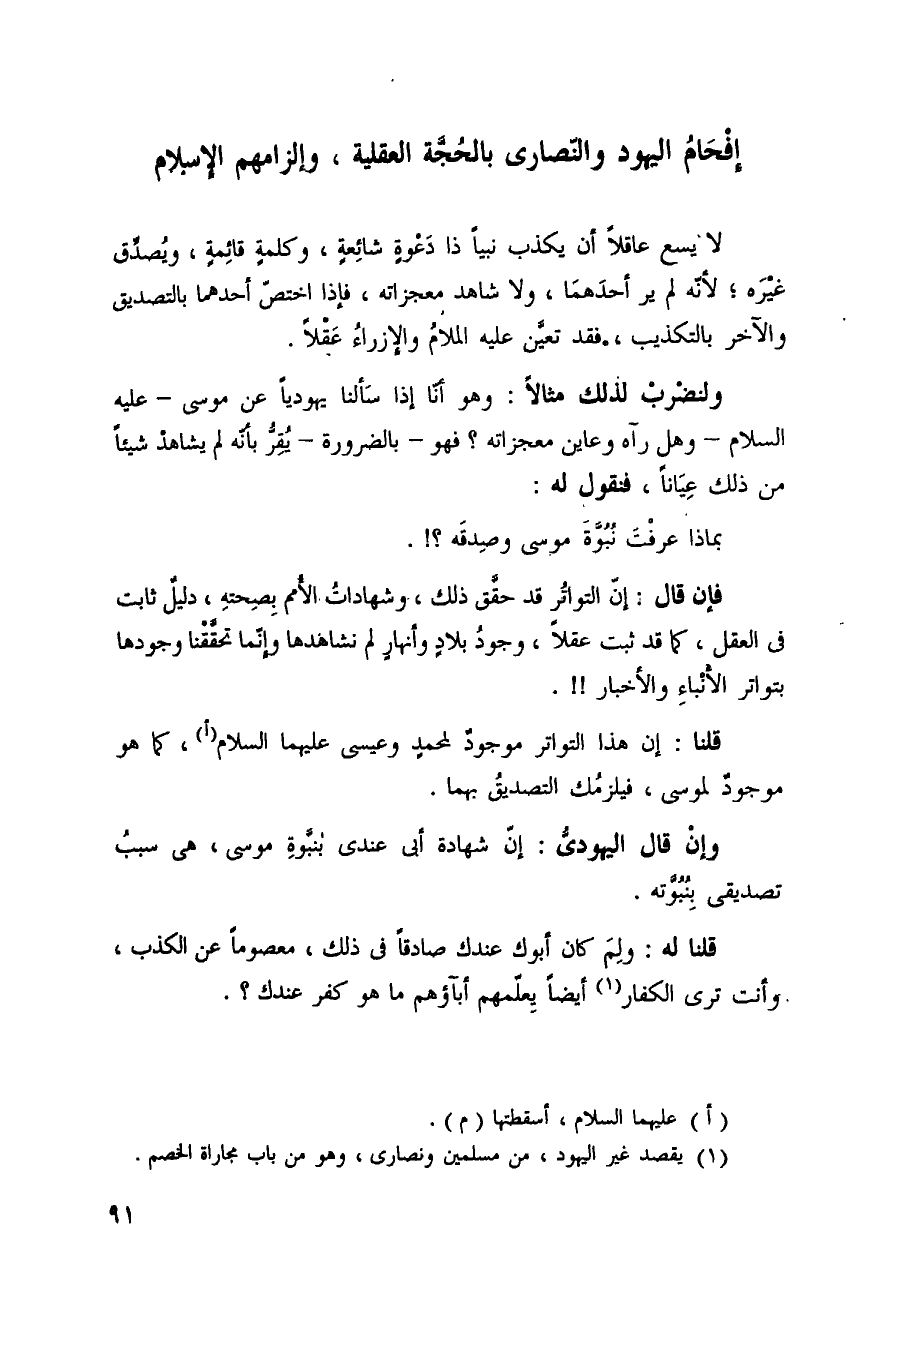 إفْحَامُ اليهود والنّصارى بالحُجَّة العقلية ، وإلزامهم الإسلام
لا يسع عاقلاً أن يكذب نبياً ذا دَعْوةٍ شائِعةٍ ، وكلمةٍ قائِمةٍ ، ويُصدِّق
غيْرَه ؛ لأنّه لم ير أحدَهمَا ، ولا شاهد معجزاته ، فإذا اختصّ أحدهما بالتصديق
والآخر بالتكذيب ، فقد تعيَّن عليه الملامُ والإزراءُ عَقْلاً .
ولنضْربْ لذلك مثالاً : وهو أنّا إذا سَألنا يهودياً عن موسى – عليه
السلام – وهل رآه وعاين معجزاته ؟ فهو – بالضرورة – يُقِرُّ بأنّه لم يشاهدْ شيئاً
من ذلك عِيَاناً ، فنقول له :
بماذا عرفْتَ نُبُوَّةَ موسى وصِدقَه ؟! .
فإن قال : إنّ التواتُر قد حقَّق ذلك ، وشهاداتُ الأُمم بِصِحتهِ ، دليلٌ ثابت
فى العقل ، كما قد ثبت عقلاً ، وجودُ بلادٍ وأنهارٍ لم نشاهدها وإنّما تحقَّقْنا وجودها
بتواتر الأنْباءِ والأخبار !! .
قلنا : إن هذا التواتر موجودٌ لمحمدٍ وعيسى عليهما السلام(أ) ، كما هو
موجودٌ لموسى ، فيلزمُك التصديقُ بهما .
وإنْ قال اليهودىُّ : إنّ شهادة أبى عندى بُنبَّوةِ موسى ، هى سببُ
تصديقى بِنُبُوَّته .
قلنا له : ولِمَ كان أبوك عندك صادقاً فى ذلك ، معصوماً عن الكذب ،
وأنت ترى الكفار(١) أيضاً يعلّمهم أبآؤهم ما هو كفر عندك ؟ .
( أ ) عليهما السلام ، أسقطتها ( م ) .
(١) يقصد غير اليهود ، من مسلمين ونصارى ، وهو من باب مجاراة الخصم .
٩١